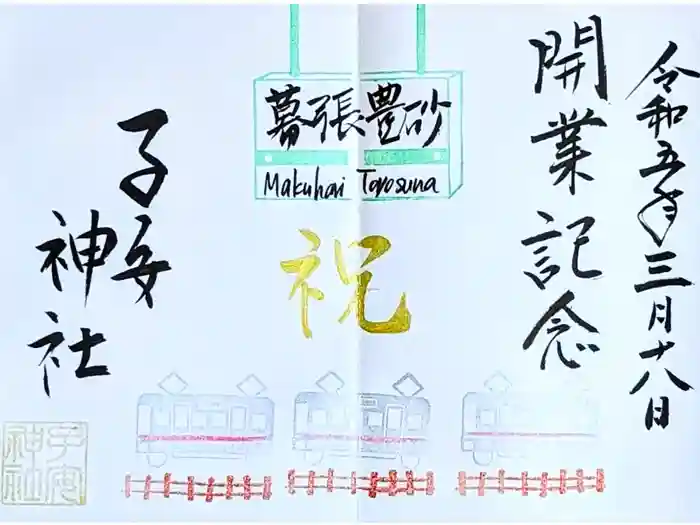 令和五年三月十八日
開業記念
幕張豊砂
Makuhari Toyosuna
祝
子安
神社
子安
神社